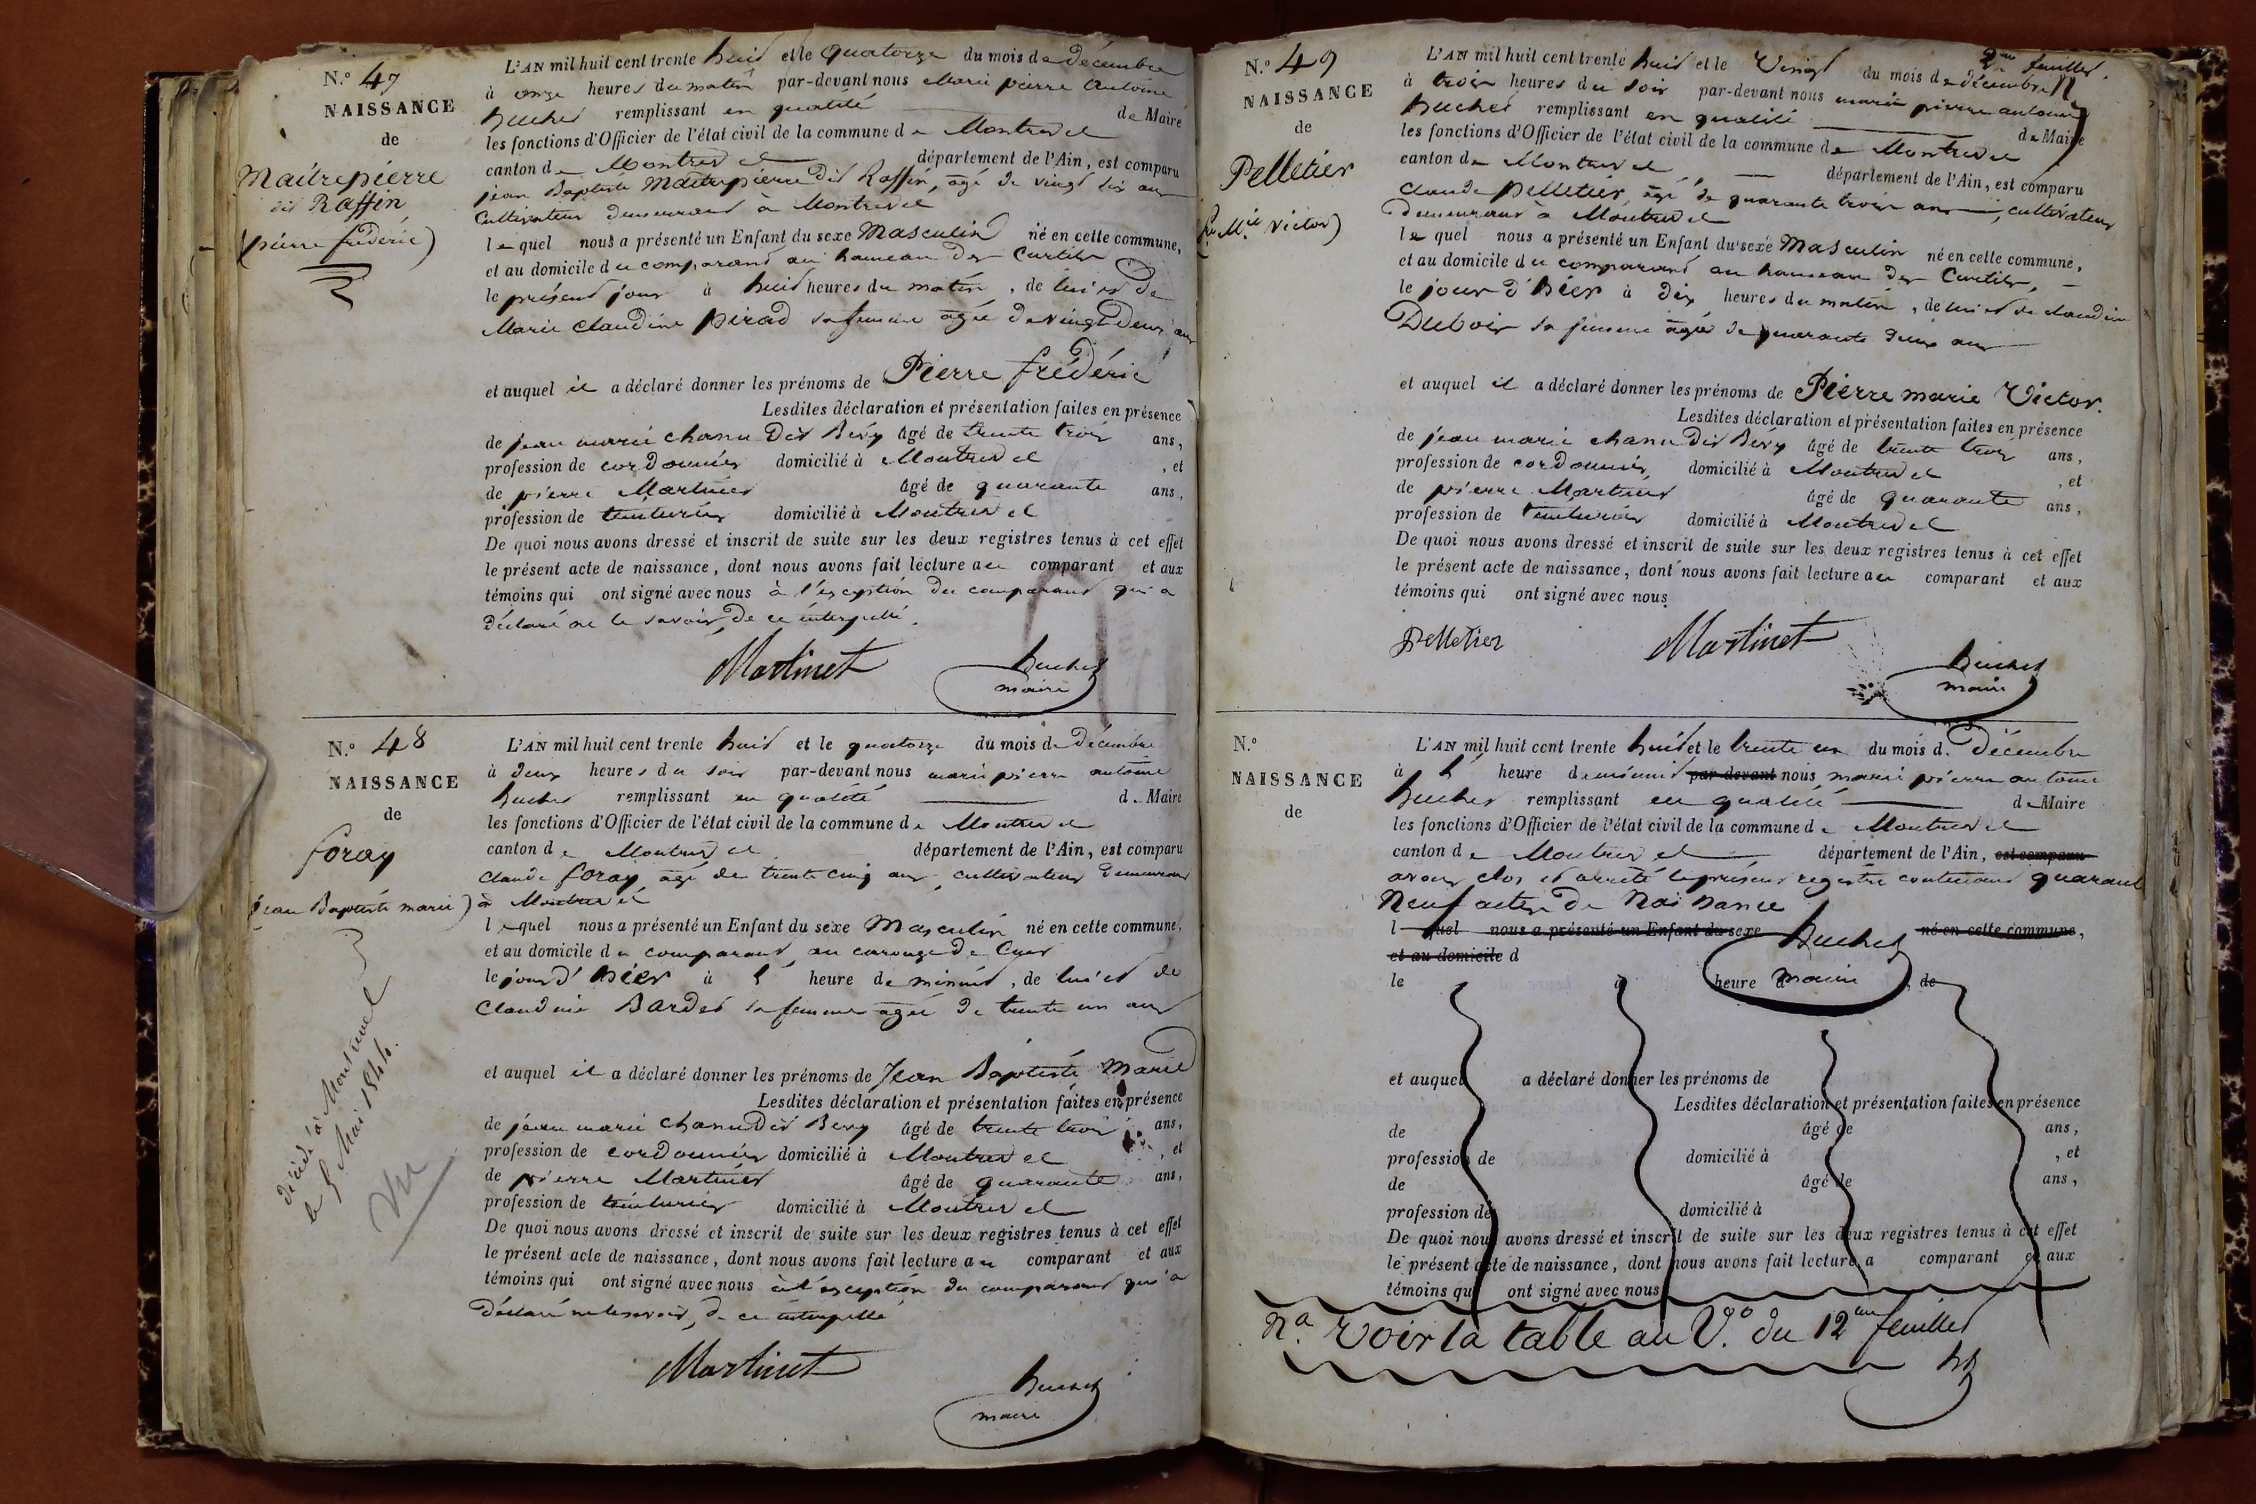 N.º 47
NAISSANCE
de
Maitrepierre
dit Raffin
(pierre frédéric)
L'AN mil huit cent trente huit et le quatorze du mois de décembre
à onze heures du matin par-devant nous Marie pierre antoine
buchet remplissant en qualité de Maire
les fonctions d'Officier de l'état civil de la commune de Montrevel
canton de Montrevel département de l'Ain, est comparu
jean Baptiste Maitrepierre dit Raffin, agé de vingt six ans
Cultivateur demeurant à Montrevel
lequel nous a présenté un Enfant du sexe Masculin né en cette commune,
et au domicile du comparant au hameau des Curtils
le présent jour à huit heures du matin, de lui et de
Marie Claudine pirad sa femme agée de vingt deux ans
et auquel il a déclaré donner les prénoms de Pierre frédéric
Lesdites déclaration et présentation faites en présence
de jean marie chanu dit Bevy âgé de trente trois ans,
profession de cordonnier domicilié à Montrevel , et
de pierre Martinet âgé de quarante ans,
profession de teinturier domicilié à Montrevel
De quoi nous avons dressé et inscrit de suite sur les deux registres tenus à cet effet
le présent acte de naissance, dont nous avons fait lecture au comparant et aux
témoins qui ont signé avec nous à l'exception du comparant qui a
déclaré ne le savoir, de ce interpellé.
Martinet
buchet
maire
N.º 48
NAISSANCE
de
foray
(jean Baptiste marie)
décédé à Montrevel
le 5 Mai 1844.
Vu
L'AN mil huit cent trente huit et le quatorze du mois de décembre
à deux heures du soir par-devant nous marie pierre antoine
buchet remplissant en qualité de Maire
les fonctions d'Officier de l'état civil de la commune de Montrevel
canton de Montrevel département de l'Ain, est comparu
claude foray agé de trente cinq ans, cultivateur demeurant
à Montrevel
lequel nous a présenté un Enfant du sexe Masculin né en cette commune,
et au domicile du comparant, au carouge de Cuet
le jour d'hier à l' heure de minuit, de lui et de
Claudine Bardet sa femme agée de trente un ans
et auquel il a déclaré donner les prénoms de Jean Baptiste Marie
Lesdites déclaration et présentation faites en présence
de jean marie chanu dit Bevy âgé de trente trois ans,
profession de cordonnier domicilié à Montrevel , et
de pierre Martinet âgé de quarante ans,
profession de teinturier domicilié à Montrevel
De quoi nous avons dressé et inscrit de suite sur les deux registres tenus à cet effet
le présent acte de naissance, dont nous avons fait lecture au comparant et aux
témoins qui ont signé avec nous à l'exception du comparant qui a
déclaré ne le savoir, de ce interpellé
Martinet
buchet
maire
feuillet.
N.º 49
NAISSANCE
de
Pelletier
(p.re M.ie victor)
L'AN mil huit cent trente huit et le Vingt du mois de décembre
à trois heures du soir par-devant nous marie pierre antoine
buchet remplissant en qualité de Maire
les fonctions d'Officier de l'état civil de la commune de Montrevel
canton de Montrevel, département de l'Ain, est comparu
claude pelletier, agé de quarante trois ans, cultivateur
demeurant à Montrevel
lequel nous a présenté un Enfant du sexe Masculin né en cette commune,
et au domicile du comparant au hameau des Curtils,
le jour d'hier à dix heures du matin, de lui et de claudine
Dubois sa femme agée de quarante deux ans
et auquel il a déclaré donner les prénoms de Pierre marie Victor.
Lesdites déclaration et présentation faites en présence
de jean marie chanu dit Bevy âgé de trente trois ans,
profession de cordonnier domicilié à Montrevel , et
de pierre Martinet âgé de quarante ans,
profession de teinturier domicilié à Montrevel
De quoi nous avons dressé et inscrit de suite sur les deux registres tenus à cet effet
le présent acte de naissance, dont nous avons fait lecture au comparant et aux
témoins qui ont signé avec nous.
Pelletier
Martinet
buchet
maire
N.º
NAISSANCE
de
L'AN mil huit cent trente huit et le trente un du mois d. Décembre
à l' heure de minuit par-devant nous marie pierre antoine
buchet remplissant en qualité de Maire
les fonctions d'Officier de l'état civil de la commune de Montrevel
canton de Montrevel département de l'Ain, est comparu
avons clos et arrêté le présent registre contenant quarante
Neuf actes de Naissance
l quel nous a présenté un Enfant du sexe né en cette commune,
et au domicile d
Buchet
maire
le à heure d , de
et auquel a déclaré donner les prénoms de
Lesdites déclaration et présentation faites en présence
de âgé de ans,
profession de domicilié à , et
de âgé de ans,
profession de domicilié à
De quoi nous avons dressé et inscrit de suite sur les deux registres tenus à cet effet
le présent acte de naissance, dont nous avons fait lecture a comparant et aux
témoins qui ont signé avec nous
N.ª Voir la table au V.º du 12.eme feuillet